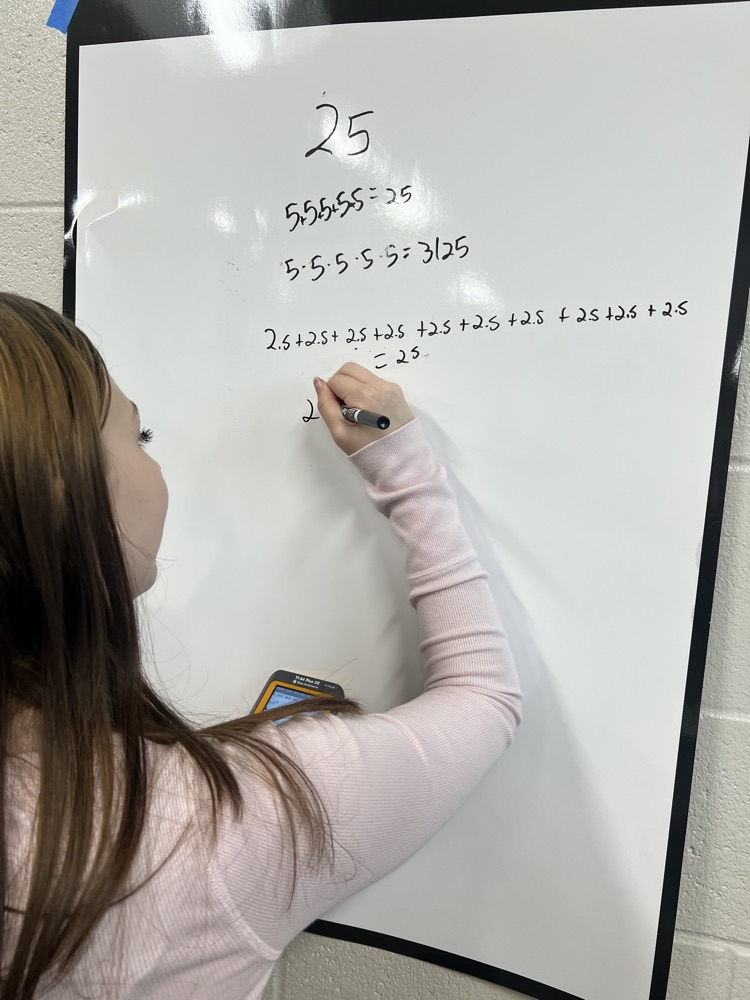 25
5+5+5+5+5=25
5·5·5·5·5=3125
2.5+2.5+2.5+2.5+2.5+2.5+2.5+2.5+2.5+2.5
=25
2
TI-84 Plus CE